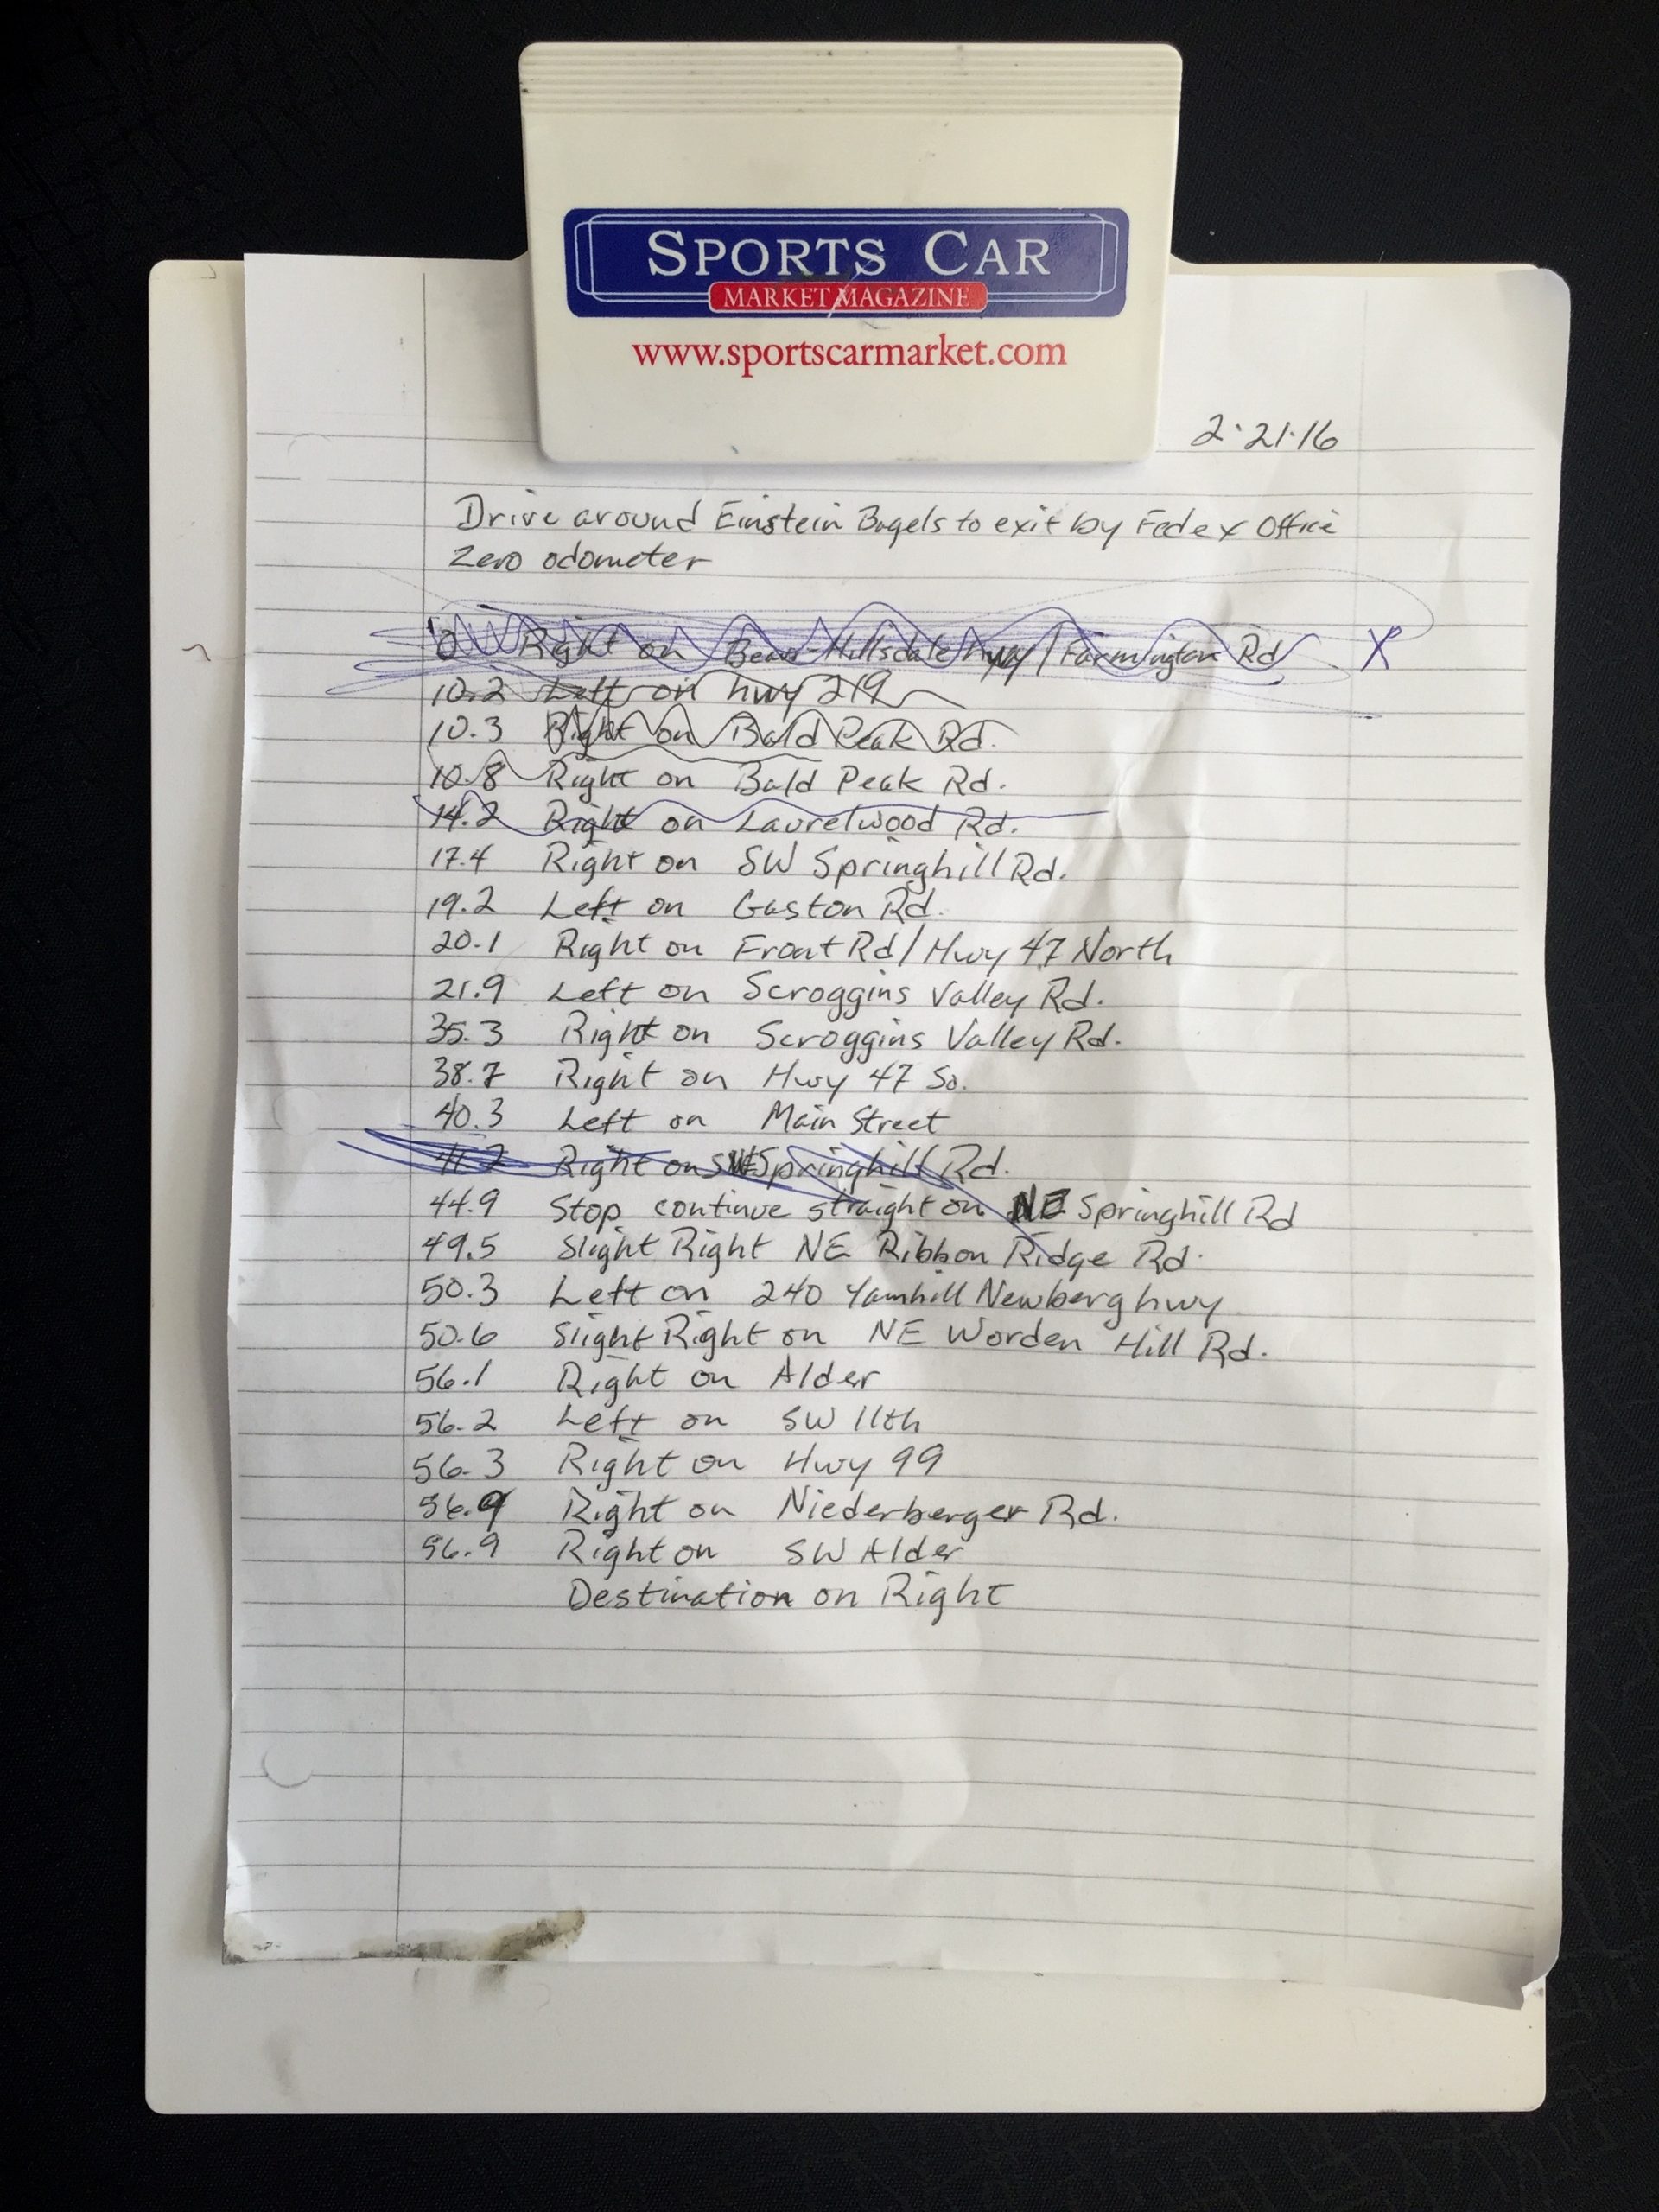 SPORTS CAR
MARKET MAGAZINE
www.sportscarmarket.com
2·21·16
Drive around Einstein Bagels to exit by Fedex Office
Zero odometer
0 Right on Beav-Hillsdale hwy / Farmington Rd X
10.2 Left on hwy 219
10.3 Right on Bald Peak Rd.
10.8 Right on Bald Peak Rd.
14.2 Right on Laurelwood Rd.
17.4 Right on SW Springhill Rd.
19.2 Left on Gaston Rd.
20.1 Right on Front Rd / Hwy 47 North
21.9 Left on Scroggins Valley Rd.
35.3 Right on Scroggins Valley Rd.
38.7 Right on Hwy 47 So.
40.3 Left on Main Street
41.2 Right on SW Springhill Rd.
44.9 Stop continue straight on NE Springhill Rd
49.5 Slight Right NE Ribbon Ridge Rd.
50.3 Left on 240 Yamhill Newberg hwy
50.6 Slight Right on NE Worden Hill Rd.
56.1 Right on Alder
56.2 Left on SW 11th
56.3 Right on Hwy 99
56.9 Right on Niederberger Rd.
56.9 Right on SW Alder
Destination on Right